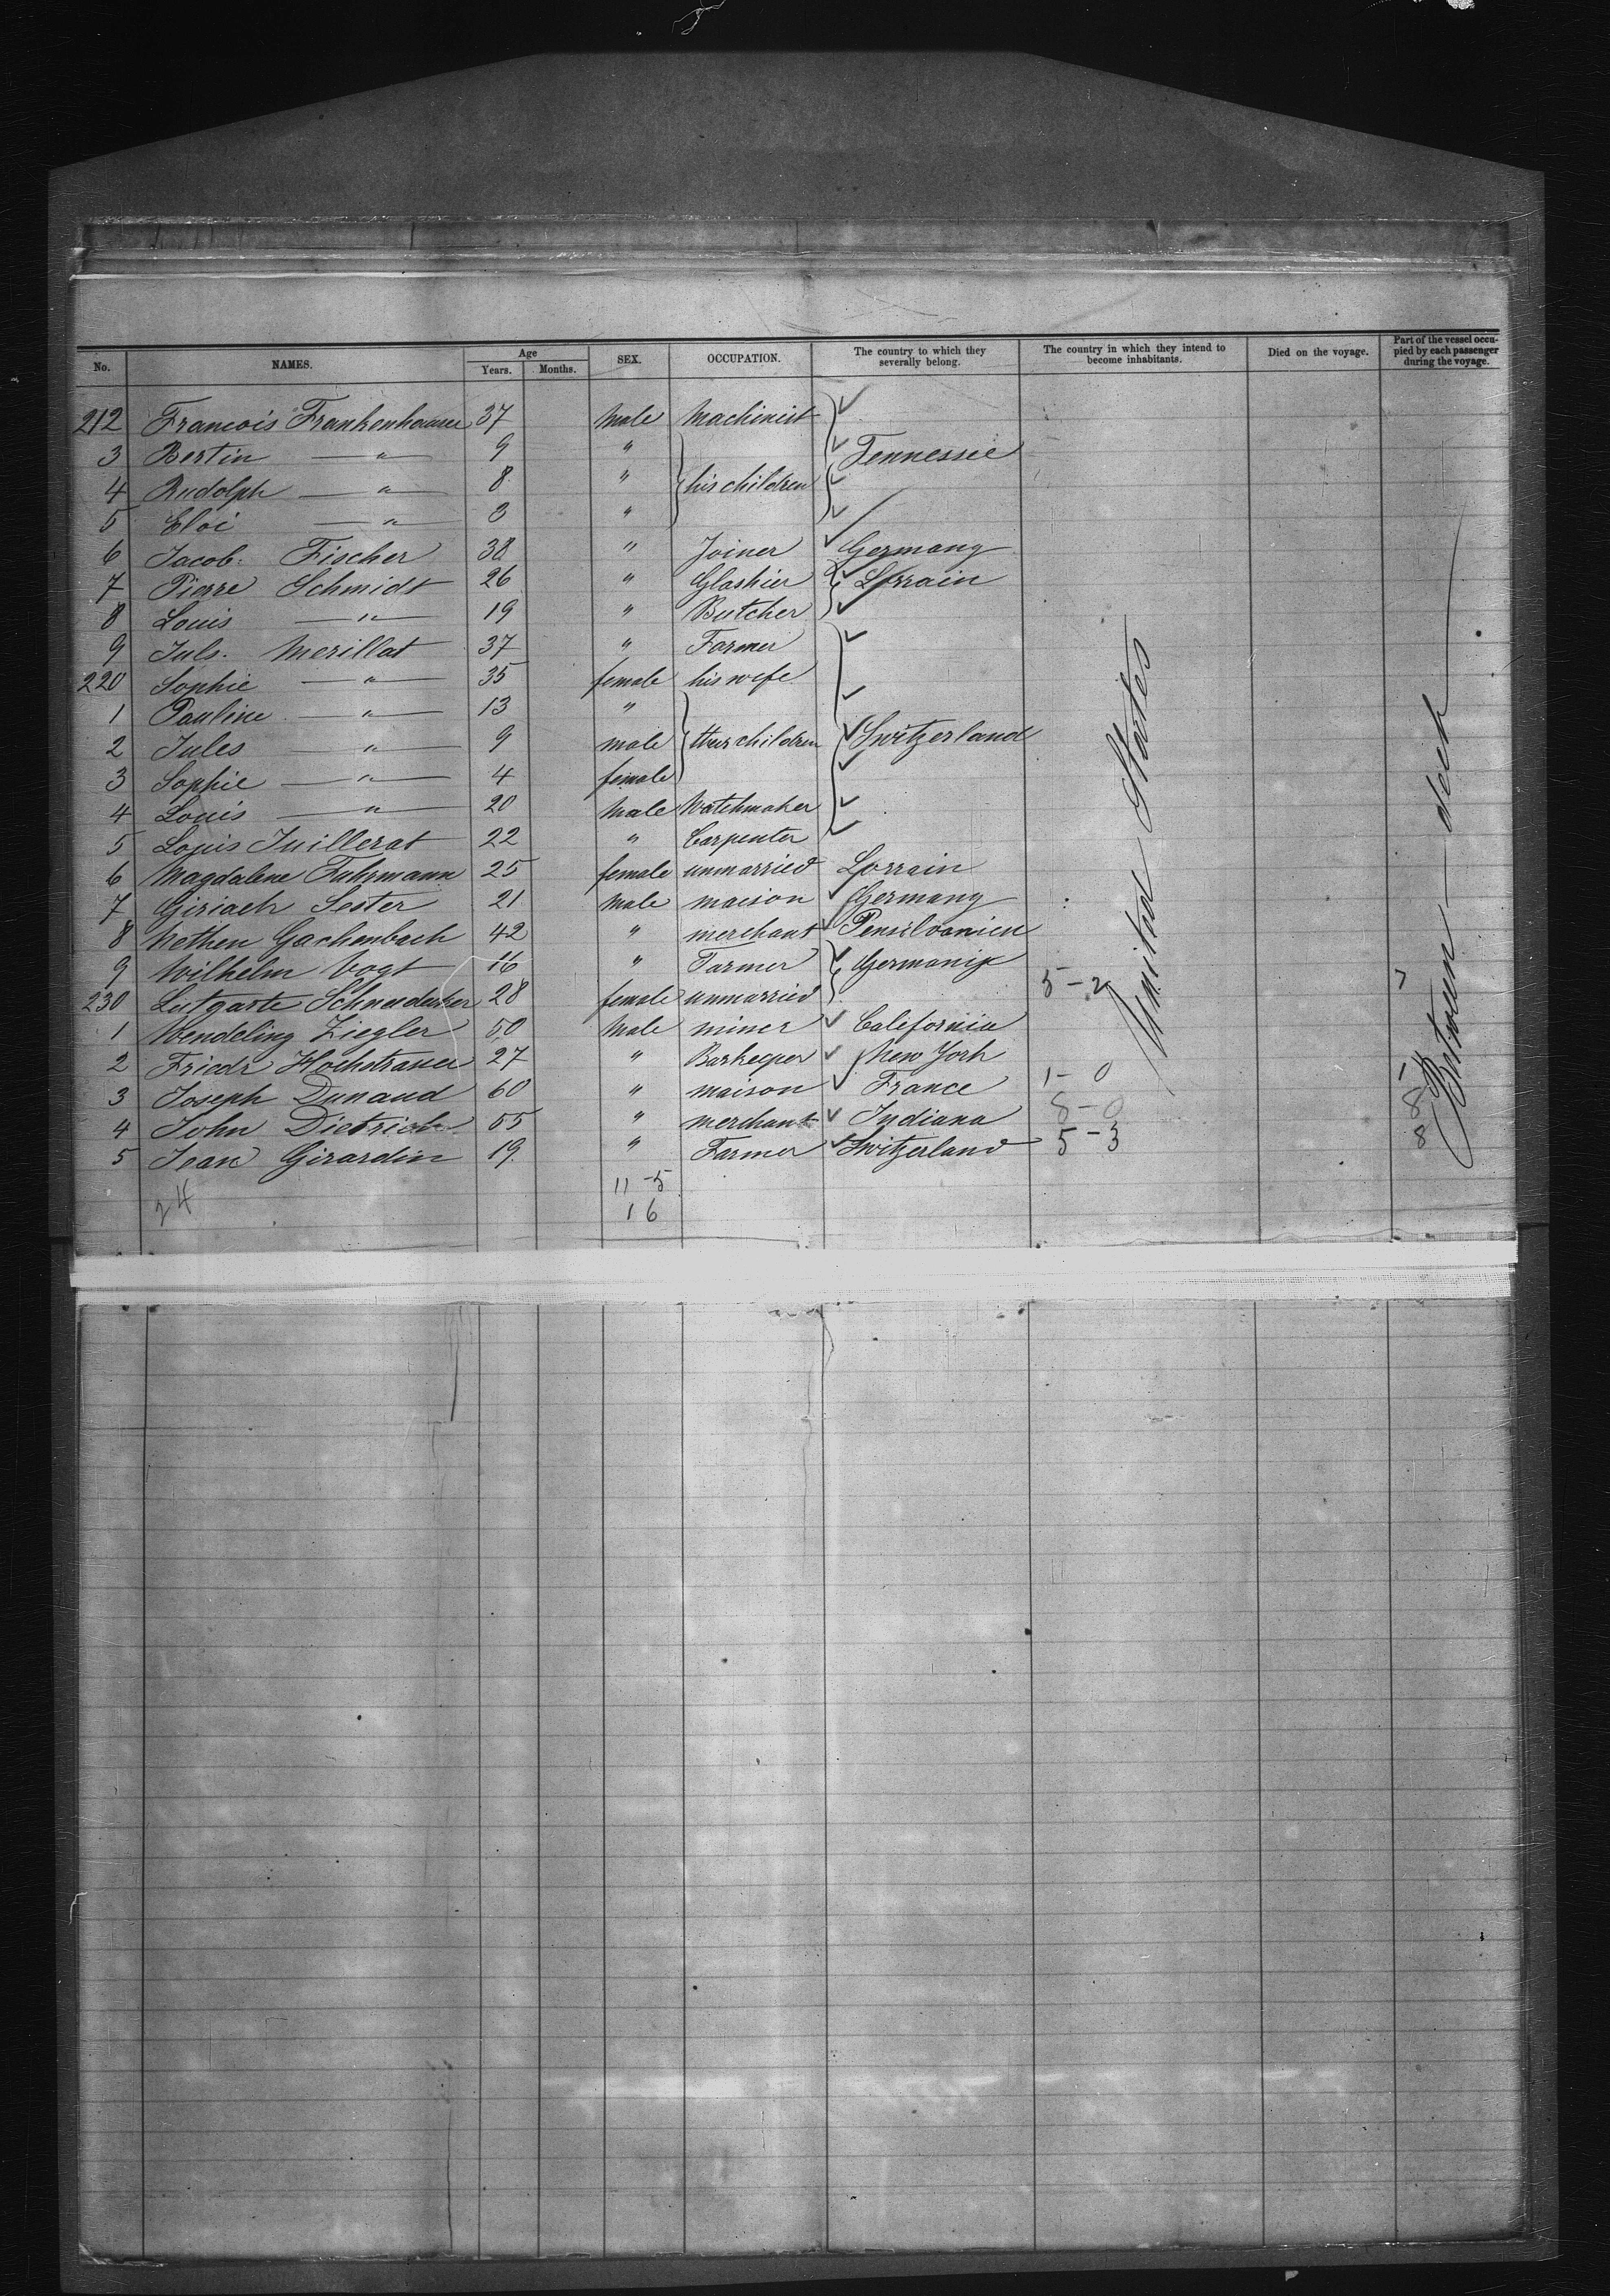 No. NAMES. Age Years. Months. SEX. OCCUPATION. The country to which they severally belong. The country in which they intend to become inhabitants. Died on the voyage. Part of the vessel occupied by each passenger during the voyage.
212 Francois Frankenhauser 37 Male Machinist
3 Bertin — " — 9 " Tennessee
4 Rudolph — " — 8 " his children
5 Eloi — " — 3 "
6 Jacob. Fischer 38 " Joiner Germany
7 Pierre Schmidt 26 " Glashier Lorrain
8 Louis — " — 19 " Butcher
9 Juls. Merillat 37 " Farmer
220 Sophie — " — 35 female his wife
1 Pauline — " — 13 "
2 Jules — " — 9 male thier children Switzerland
3 Sophie — " — 4 female
4 Louis — " — 20 Male Watchmaker
5 Louis Juillerat 22 " Carpenter
6 Magdalene Fuhrmann 25 female unmarried Lorrain
7 Giriach Sester 21 Male maison Germany
8 Nethen Gachenbach 42 " merchant Pensilvanien
9 Wilhelm Vogt 16 " Farmer Germanie
230 Lutgarte Schneduker 28 female unmarried 5-2
1 Wendeling Ziegler 50 Male miner California
2 Friedr Hochstrasser 27 " Barkeeper New York
3 Joseph Dunand 60 " maison France 1-0
4 John Dietrich 55 " merchant Indiana 8-0
5 Jean Girardin 19 " Farmer Switzerland 5-3
United States
Between — deck
11-5
24
16